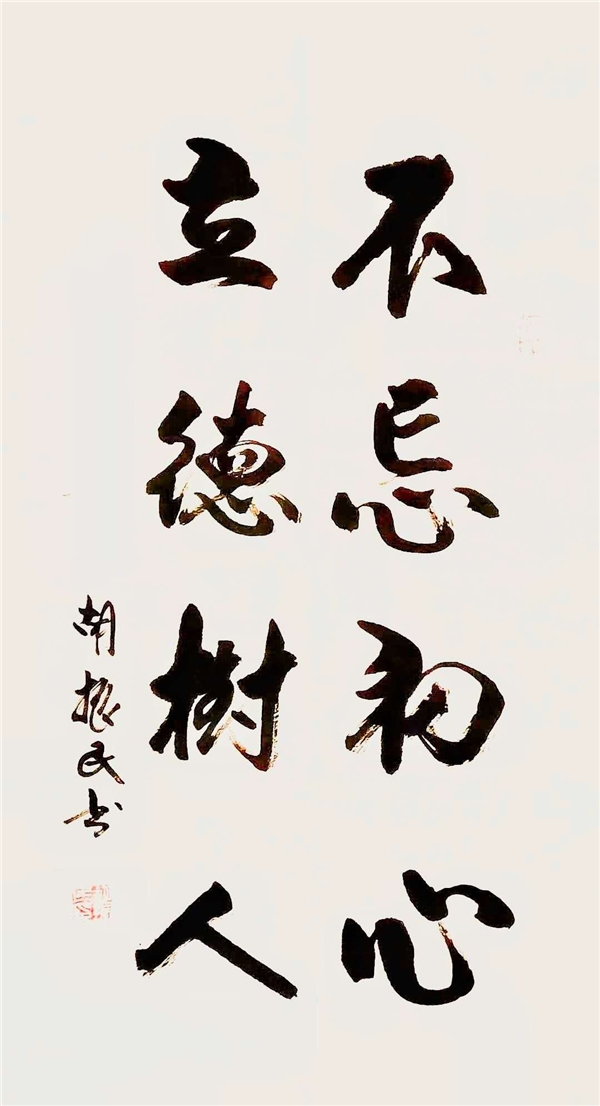 不忘初心
立德樹人
胡振民书